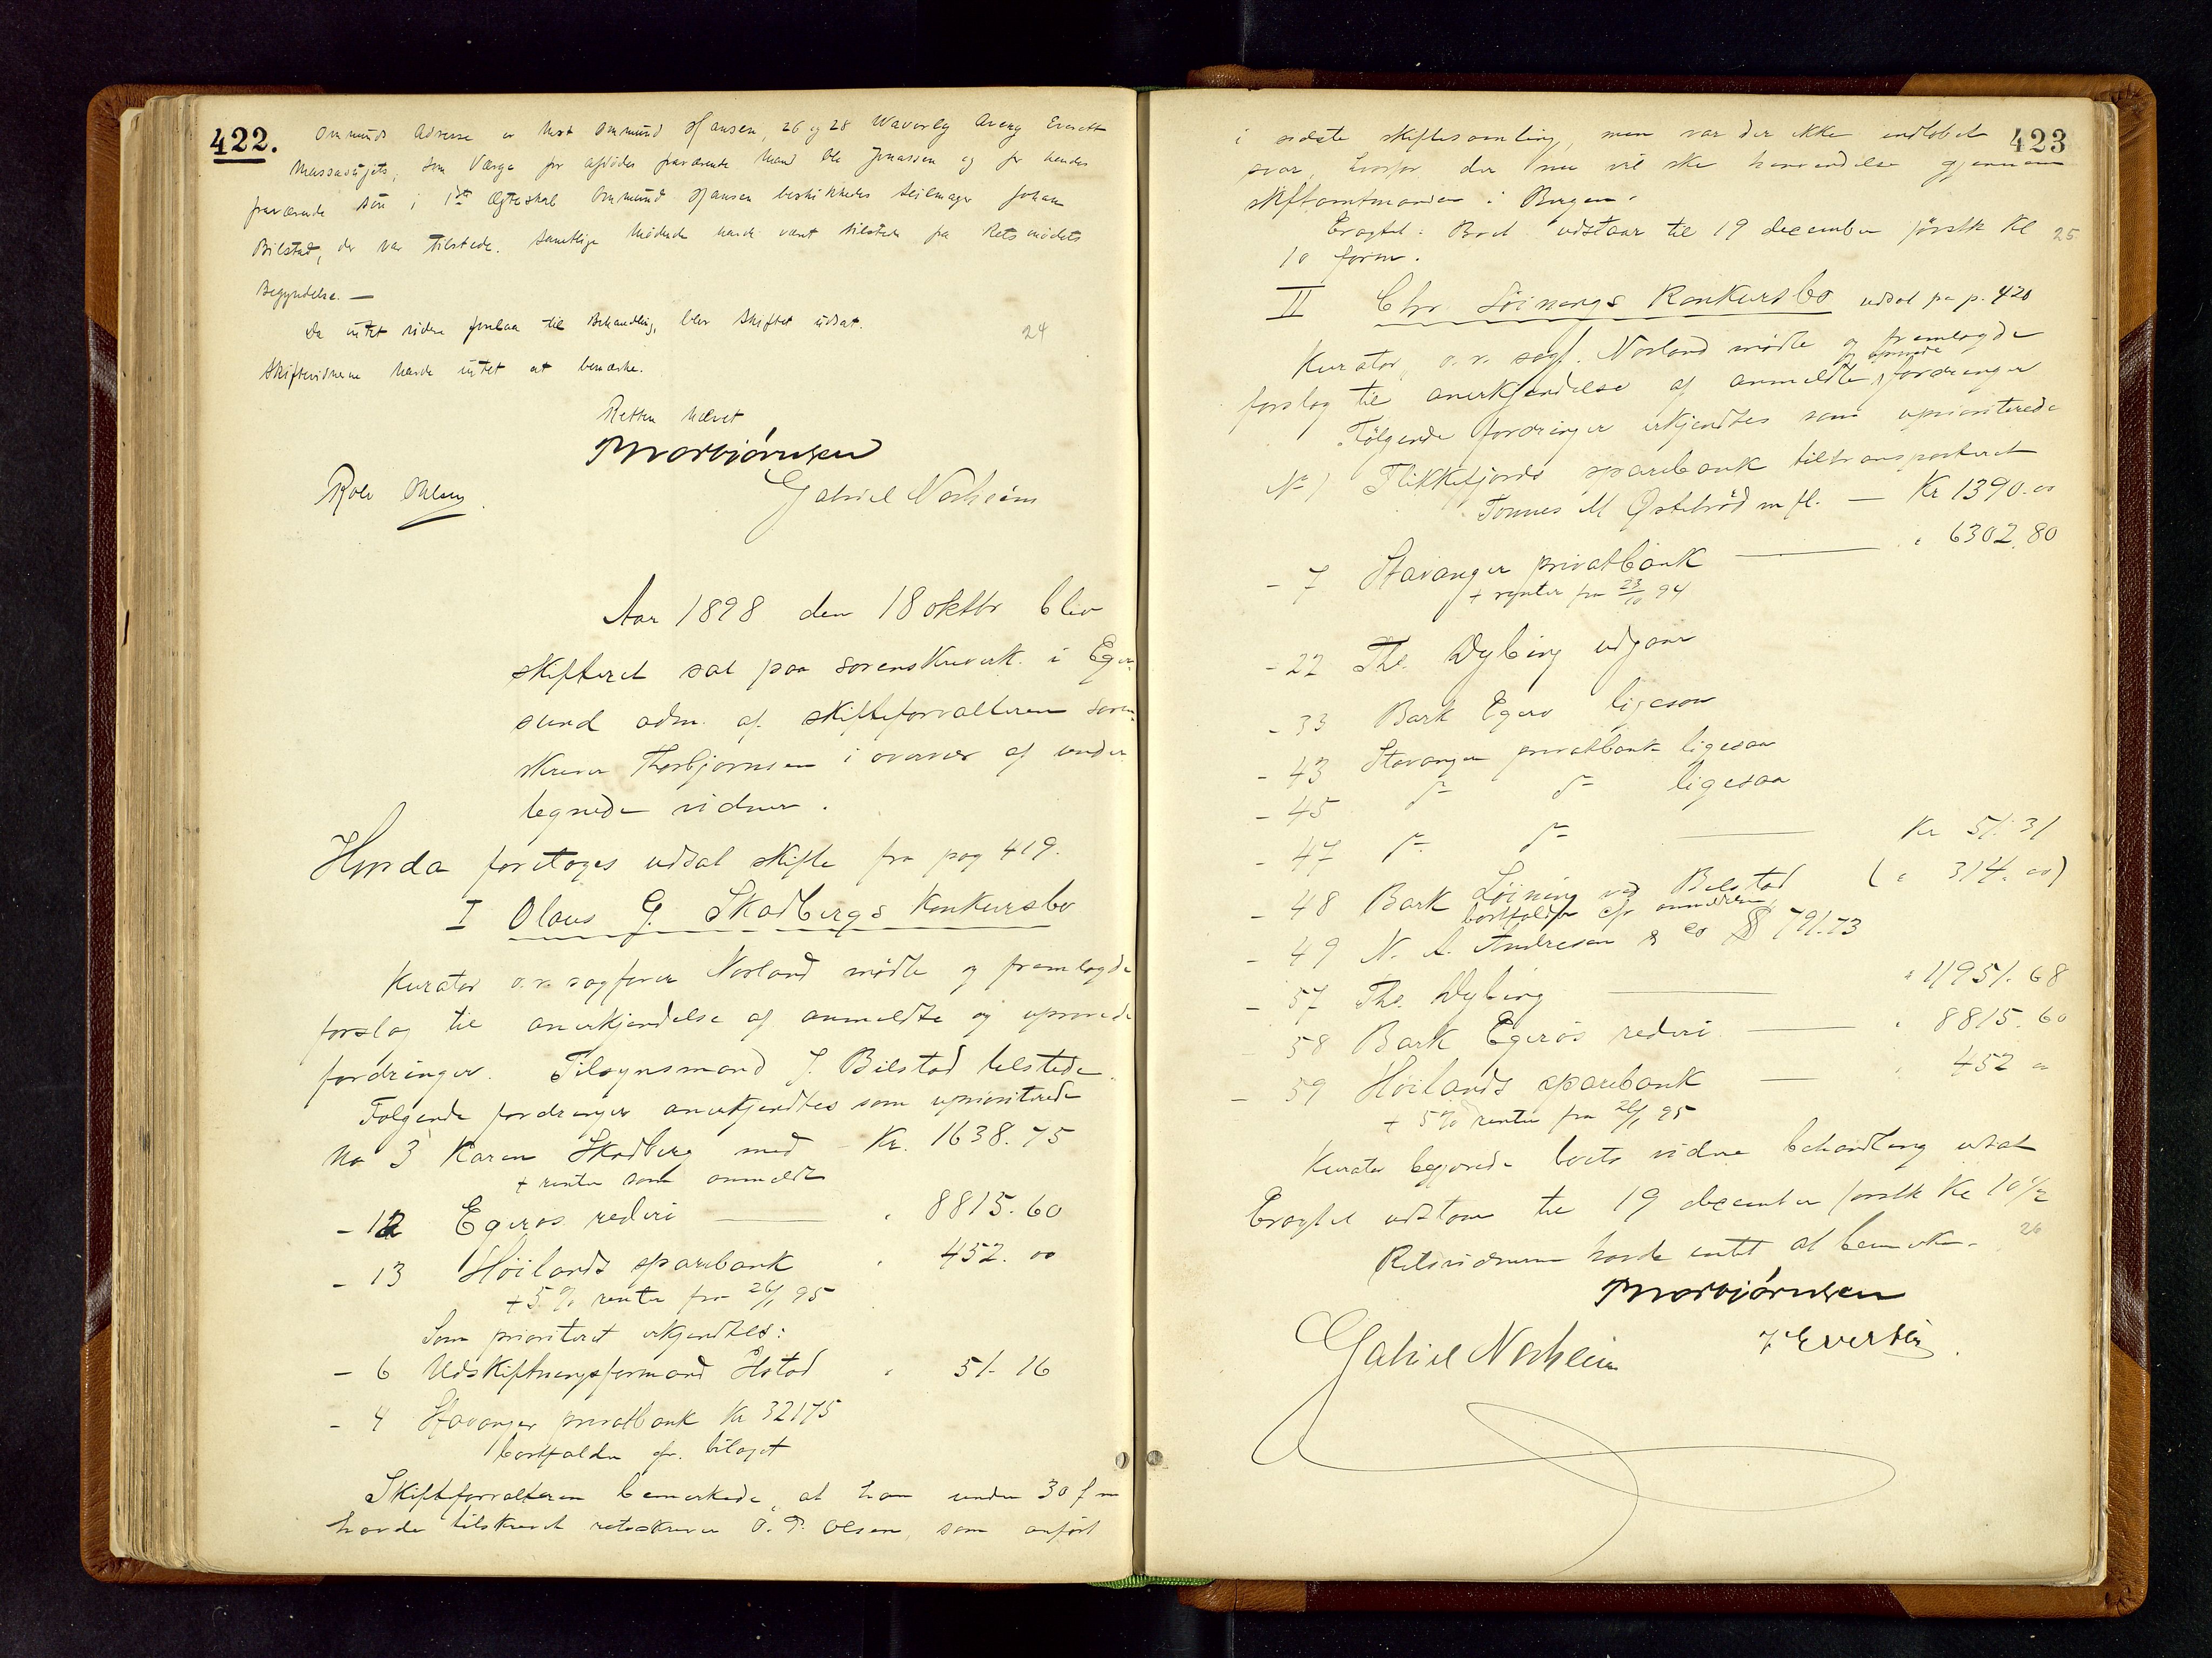 422.
Ommunds Adresse er Mrst Ommund Hansen, 26 og 28 Waverley Aveny Everett
Massasusjets, som Værge for afdødes fraværende Mand Ole Jonassen og for hendes
fraværende Søn i 1ste Ægteskab Ommund Hansen beskikkedes Seilmager Johan
Bilstad, der var tilstede. Samtlige Mødende havde været tilstede fra Retsmødets
Begyndelse. —
Da intet videre forelaa til Behandling, blev Skiftet udsat.
24
Skiftevidnerne havde intet at bemærke.
Retten hævet
Thorbjørnsen
Rolv
Gabriel Norheim
Aar 1898 den 18 oktbr blev
skifteret sat paa sorenskriverk. i Eger-
sund adm. af skifteforvalteren soren-
skriver Thorbjørnsen i overvær af under-
tegnede vidner.
Hvorda foretoges udsat skifte fra pag 419.
I Olaus G. Skadbergs Konkursbo
Kurator o.r. sagfører Norland mødte og fremlagde
forslag til anerkjendelse af anmeldte og uprøvede
fordringer. Tilsynsmand J. Bilstad tilstede.
Følgende fordringer anerkjendtes som uprioriterede
No 3 Karen Skadberg med - Kr. 1638.75
+ renter som anmeldt
- 12 Egerøs rederi — " 8815.60
- 13 Høilands sparebank " 452.00
+ 5 % renter fra 26/1 95
Som prioriteret erkjendtes:
- 6 Udskiftningsformand Helstad " 51.16
- 4 Stavanger privatbank Kr 32175
bortfalder efr. bilaget
Skifteforvalteren bemærkede, at han under 30 f m
havde tilskrevet retsskriver O. P. Olsen, som anført
423
i sidste skiftesamling, men var der ikke indløbet
svar, hvorfor der nu vil ske henvendelse gjennem
skiftamtmanden i Bergen.
Eragtet: Boet udstaar til 19 december førstk Kl
25
10 form.
II Chr. Løinings Konkursbo udsat fra p. 420
Kurator, o.r. sagf. Norland mødte og fremlagde
og uprøvede
forslag til anerkjendelse af anmeldte fordringer
Følgende fordringer erkjendtes som uprioriterede
No 1 Flekkefjords sparebank tiltransporteret
Tønnes M Østebrød m fl. — Kr 1390.00
- 7 Stavanger privatbank — " 6302.80
+ renter fra 23/10 94
- 22 Ths. Dybing udgaar
- 33 Bark Egerø ligesaa
- 43 Stavanger privatbank ligesaa
- 45 do do ligesaa
- 47 do do — Kr 51.31
- 48 Bark Løining ved Bilstad ( " 314.00)
bortfalder efr anmelderen
- 49 N. A. Andresen & Co $ 791.73
- 57 Ths. Dybing — " 11951.68
- 58 Bark Egerøs rederi — " 8815.60
- 59 Høilands sparebank — " 452 "
+ 5 % renter fra 26/1 95
Kurator begjærede boets videre behandling udsat
Eragtet udstaar til 19 december førstk Kl 10 1/2
26
Retsvidnerne havde intet at bemerke.
Thorbjørnsen
Gabriel Norheim